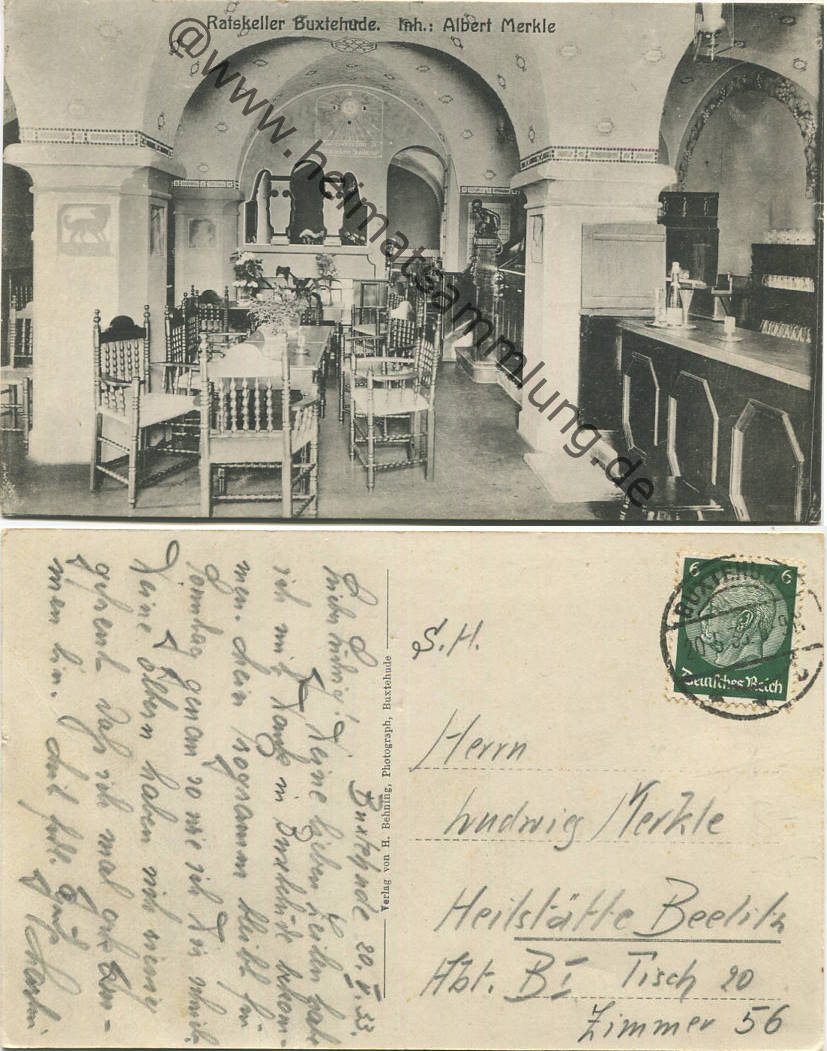 Ratskeller Buxtehude. Inh.: Albert Merkle
@www.heimatsammlung.de
Buxtehude 20. V. 33.
Lieber Ludwig! Deine lieben Zeilen habe
ich mit Dank in Buxtehude bekom-
men. Mein Programm bleibt für
Sonntag genau so wie ich Dir schrieb.
Deine Eltern haben sich riesig
gefreut daß ich mal gekom-
men bin. Mit frdl. Gruß
Verlag von H. Behning, Photograph, Buxtehude
S. H.
Herrn
Ludwig Merkle
Heilstätte Beelitz
Abt. B I Tisch 20
Zimmer 56
6 6
Deutsches Reich
BUXTEHUDE